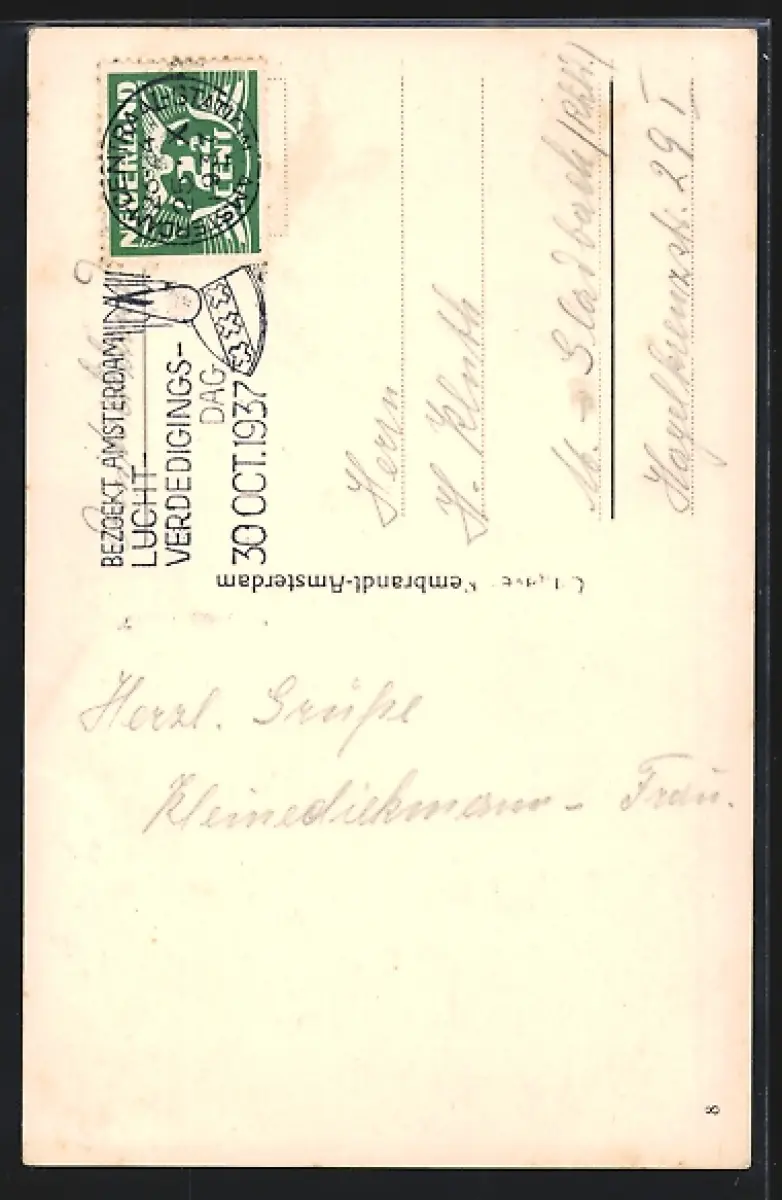 NEDERLAND
2½
CENT
AMSTERDAM CENTRAAL STATION
25 X
1937
BEZOEKT AMSTERDAM
LUCHT-
VERDEDIGINGS-
DAG
30 OCT. 1937
Herrn
H. Kluth
M.-Gladbach (Rhld.)
Hagelkreuzstr. 29 I
Rembrandt-Amsterdam
Herzl. Grüße
Kleinediekmann - Frau.
8